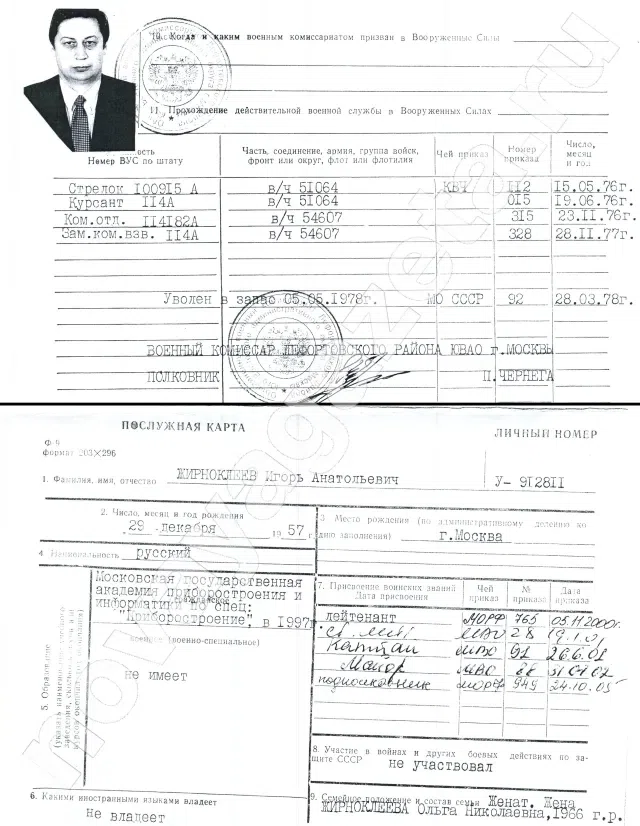 10. Когда и каким военным комиссариатом призван в Вооруженные Силы
11. Прохождение действительной военной службы в Вооруженных Силах
Номер ВУС по штату
Часть, соединение, армия, группа войск, фронт или округ, флот или флотилия
Чей приказ
Номер приказа
Число, месяц и год
Стрелок 100915 А в/ч 51064 КВЧ 112 15.05.76г.
Курсант 114А в/ч 51064 015 19.06.76г.
Ком.отд. 114182А в/ч 54607 315 23.11.76г.
Зам.ком.взв. 114А в/ч 54607 328 28.11.77г.
Уволен в запас 05.05.1978г. МО СССР 92 28.03.78г.
ВОЕННЫЙ КОМИССАР ЛЕФОРТОВСКОГО РАЙОНА ЮВАО г.МОСКВЫ
ПОЛКОВНИК П.ЧЕРНЕГА
ПОСЛУЖНАЯ КАРТА
ЛИЧНЫЙ НОМЕР
Ф-9
формат 203×296
1. Фамилия, имя, отчество ЖИРНОКЛЕЕВ Игорь Анатольевич
У- 912811
2. Число, месяц и год рождения
29 декабря 1957 г.
3 Место рождения (по административному делению ко дню заполнения) г.Москва
4 Национальность русский
5. Образование
Московская государственная
академия приборостроения и
информатики по спец:
"Приборостроение" в 1997г.
(военно-специальное)
не имеет
7. Присвоение воинских званий
Дата присвоения
Чей приказ
№ приказа
Дата приказа
лейтенант МОРФ 765 05.11.2000г.
Майор МВО
подполковник МОРФ 949 24.10.05
8. Участие в войнах и других боевых действиях по защите СССР
не участвовал
6. Какими иностранными языками владеет
Не владеет
9. Семейное положение и состав семьи Женат. Жена
ЖИРНОКЛЕЕВА Ольга Николаевна,1966 г.р.
novayagazeta.ru